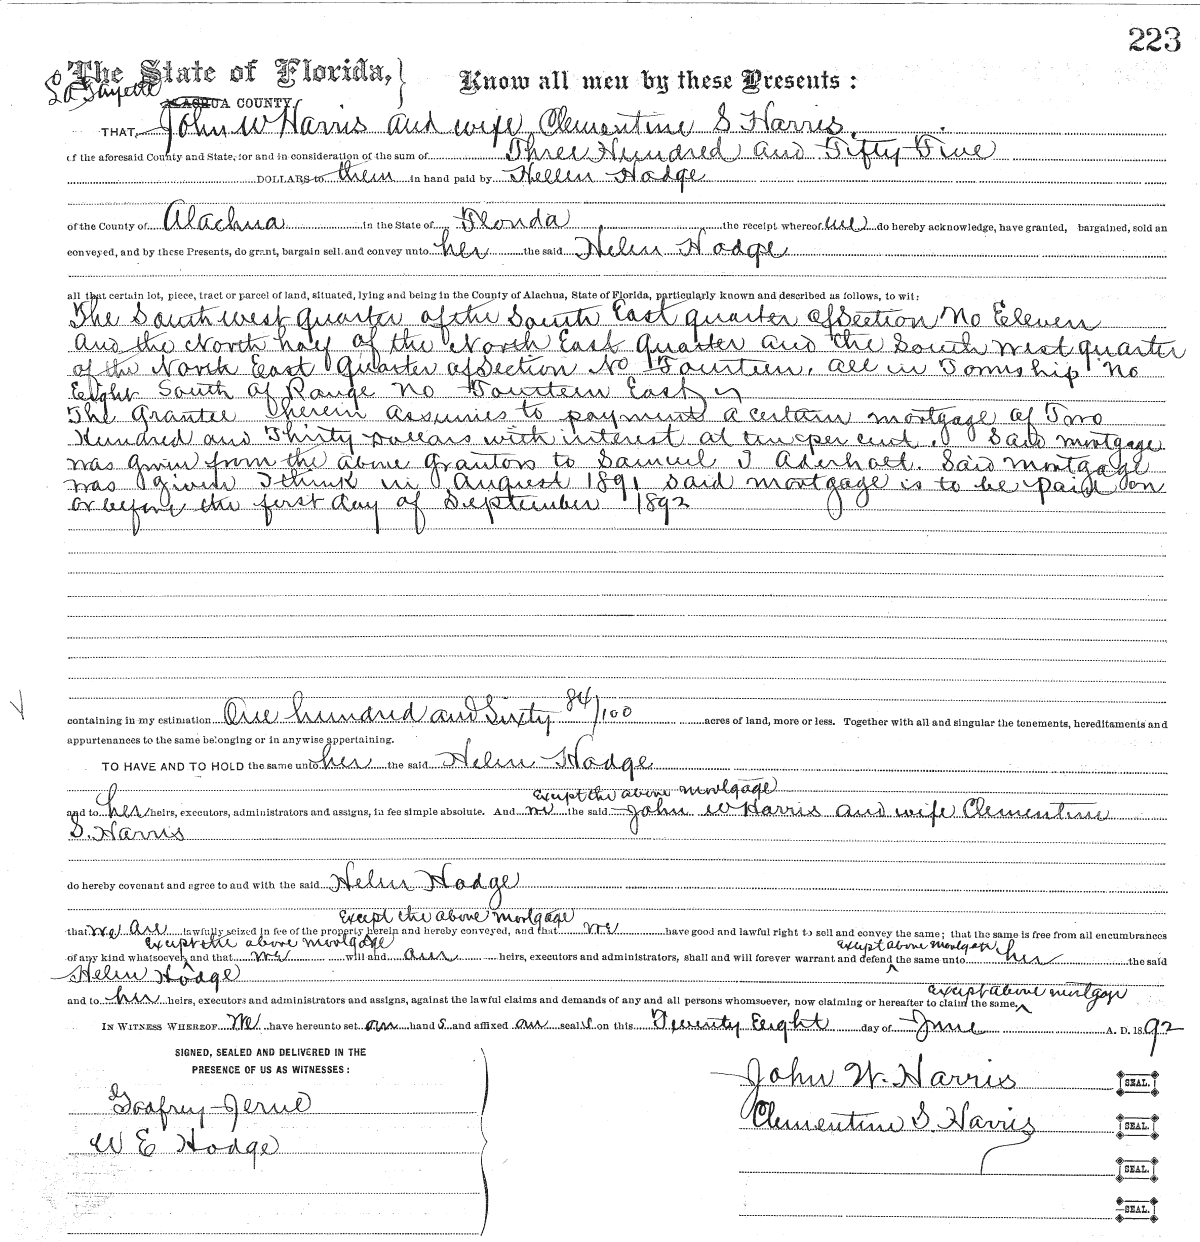 223
The State of Florida, }
La Fayette
ALACHUA COUNTY.
Know all men by these Presents:
THAT, John W Harris and wife Clementine S Harris
of the aforesaid County and State, for and in consideration of the sum of Three Hundred and Fifty Five
DOLLARS to them in hand paid by Hellen Hodge
of the County of Alachua in the State of Florida the receipt whereof we do hereby acknowledge, have granted, bargained, sold an
conveyed, and by these Presents, do grant, bargain sell and convey unto her the said Helen Hodge
all that certain lot, piece, tract or parcel of land, situated, lying and being in the County of Alachua, State of Florida, particularly known and described as follows, to wit:
The South west quarter of the South East quarter of Section No Eleven
and the North half of the North East Quarter and the South West quarter
of the North East Quarter of Section No Fourteen. all in Township No
Eight South of Range No Fourteen East
The Grantee herein assumes to payment a certain mortgage of Two
Hundred and Thirty Dollars with interest at ten per cent. Said mortgage
was given from the above grantors to Samuel J Aderholt. Said mortgage
was given I think in August 1891 said mortgage is to be paid on
or before the first day of September 1892
containing in my estimation One hundred and Sixty 84/100 acres of land, more or less. Together with all and singular the tenements, hereditaments and
appurtenances to the same belonging or in anywise appertaining.
TO HAVE AND TO HOLD the same unto her the said Helen Hodge
except the above mortgage
and to her heirs, executors, administrators and assigns, in fee simple absolute. And we the said John W Harris and wife Clementine
S. Harris
do hereby covenant and agree to and with the said Helen Hodge
Except the above mortgage
that we are lawfully seized in fee of the property herein and hereby conveyed, and that we have good and lawful right to sell and convey the same; that the same is free from all encumbrances
except the above mortgage except above mortgage
of any kind whatsoever, and that we will and our heirs, executors and administrators, shall and will forever warrant and defend the same unto her the said
Helen Hodge
except above mortgage
and to her heirs, executors and administrators and assigns, against the lawful claims and demands of any and all persons whomsoever, now claiming or hereafter to claim the same.
IN WITNESS WHEREOF We have hereunto set our hand s and affixed our seal s on this Twenty Eight day of June A. D. 1892
SIGNED, SEALED AND DELIVERED IN THE
PRESENCE OF US AS WITNESSES:
John W. Harris SEAL.
Godfrey
Clementine S. Harris SEAL.
W E Hodge
SEAL.
SEAL.